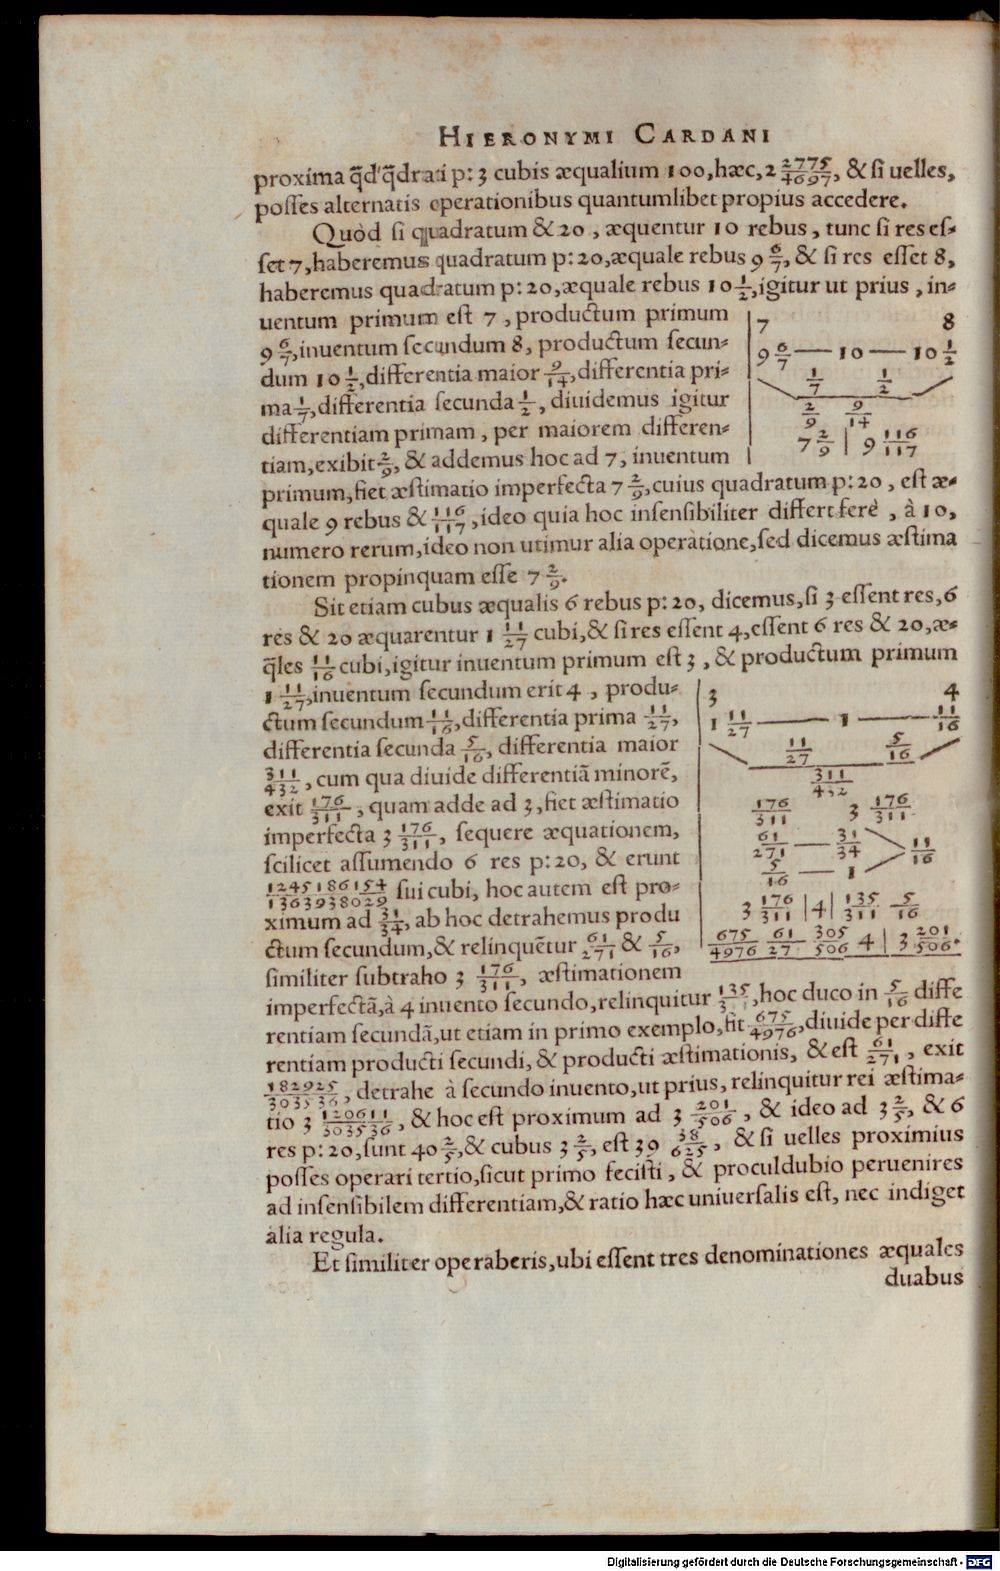 HIERONYMI CARDANI
proxima q̃d'q̃drati p: 3 cubis æqualium 100, hæc, 2 2775/4697, & si uelles,
posses alternatis operationibus quantumlibet propius accedere.
Quòd si quadratum & 20, æquentur 10 rebus, tunc si res es-
set 7, haberemus quadratum p: 20, æquale rebus 9 6/7, & si res esset 8,
haberemus quadratum p: 20, æquale rebus 10 1/2, igitur ut prius, in-
uentum primum est 7, productum primum
9 6/7, inuentum secundum 8, productum secun-
dum 10 1/2, differentia maior 9/14, differentia pri-
ma 1/7, differentia secunda 1/2, diuidemus igitur
differentiam primam, per maiorem differen-
tiam, exibit 2/9, & addemus hoc ad 7, inuentum
7 8
9 6/7 — 10 — 10 1/2
1/7 1/2
2/9 9/14
7 2/9 | 9 116/117
primum, fiet æstimatio imperfecta 7 2/9, cuius quadratum p: 20, est æ-
quale 9 rebus & 116/117, ideo quia hoc insensibiliter differt ferè, à 10,
numero rerum, ideo non utimur alia operatione, sed dicemus æstima
tionem propinquam esse 7 2/9.
Sit etiam cubus æqualis 6 rebus p: 20, dicemus, si 3 essent res, 6
res & 20 æquarentur 1 11/27 cubi, & si res essent 4, essent 6 res & 20, æ-
q̃les 11/16 cubi, igitur inuentum primum est 3, & productum primum
1 11/27, inuentum secundum erit 4, produ-
ctum secundum 11/16, differentia prima 11/27,
differentia secunda 5/16, differentia maior
311/432, cum qua diuide differentiã minorẽ,
exit 176/311, quam adde ad 3, fiet æstimatio
imperfecta 3 176/311, sequere æquationem,
scilicet assumendo 6 res p: 20, & erunt
1245186154/1363938029 sui cubi, hoc autem est pro-
ximum ad 31/34, ab hoc detrahemus produ
ctum secundum, & relinquẽtur 61/271 & 5/16,
similiter subtraho 3 176/311, æstimationem
3 4
1 11/27 — 1 — 11/16
11/27 5/16
311/432
176/311 3 176/311
61/271 — 31/34 11/16
5/16 — 1
3 176/311 | 4 | 135/311 5/16
675/4976 61/27 305/506 4 | 3 201/506.
imperfectã, à 4 inuento secundo, relinquitur 135/3 1, hoc duco in 5/16 diffe
rentiam secundã, ut etiam in primo exemplo, fit 675/4976, diuide per diffe
rentiam producti secundi, & producti æstimationis, & est 61/271, exit
182925/303536, detrahe à secundo inuento, ut prius, relinquitur rei æstima-
tio 3 120611/303536, & hoc est proximum ad 3 201/506, & ideo ad 3 2/5, & 6
res p: 20, sunt 40 2/5, & cubus 3 2/5, est 39 38/625, & si uelles proximius
posses operari tertio, sicut primo fecisti, & proculdubio peruenires
ad insensibilem differentiam, & ratio hæc uniuersalis est, nec indiget
alia regula.
Et similiter operaberis, ubi essent tres denominationes æquales
duabus
Digitalisierung gefördert durch die Deutsche Forschungsgemeinschaft - DFG